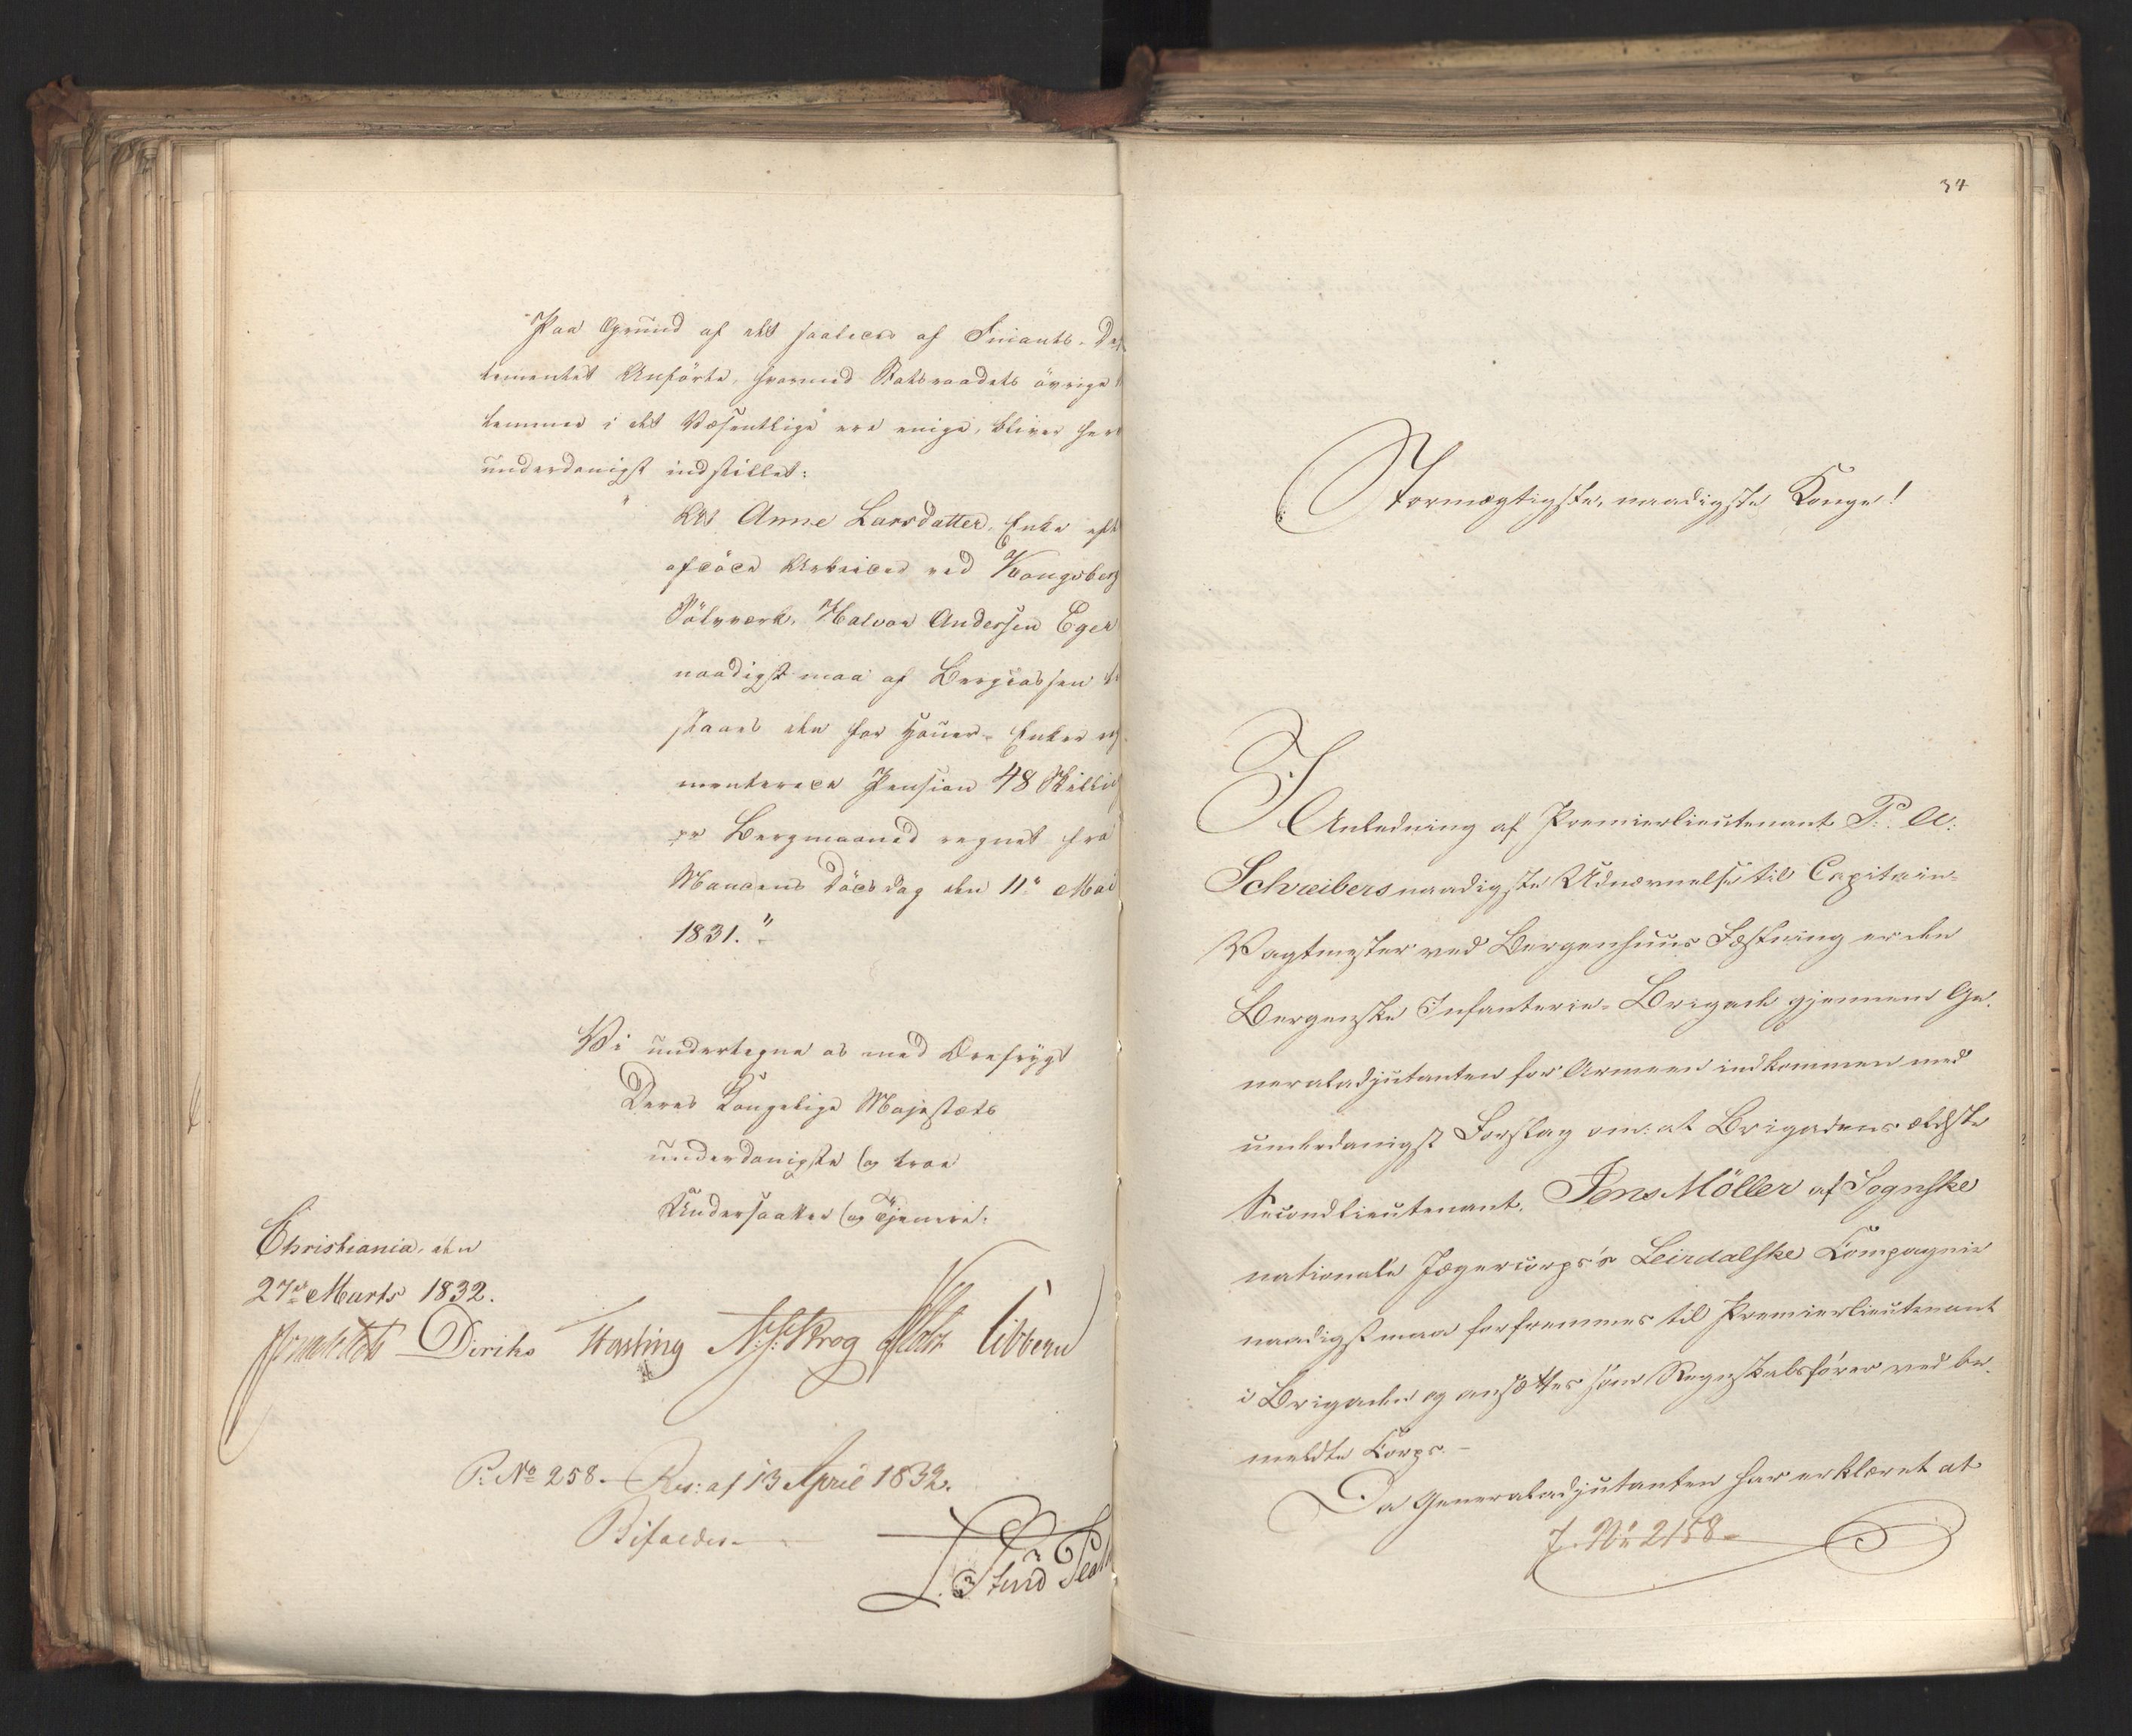 Paa Grund af det saaledes af Finants-De
tementet Anförte, hvormed Statsraadets övrige
lemmer i det Væsentlige ere enige, bliver her
underdanigst indstillet:
"At Anne Larsdatter, Enke eft
afdöde Arbeider ved Kongsberg
Sölvværk, Halvor Andersen Eger
naadigst maa af Bergcassen
staaes den for Hauer-Enker reg
menterede Pension 48 Skilli
pr Bergmaaned regnet fra
Mandens Dödsdag den 11te Mai
1831."
Vi undertegne os med Ærefrygt
Deres Kongelige Majestæts
underdanigste og troe
Undersaatter og Tjenere:
Christiania, den
27de Marts 1832.
Diriks Hasting N. J. Krog Holst Vibbern
P: No 258. Res: af 13 April 1832.
Bifaldes.
34
Stormægtigste, naadigste Konge!
I Anledning af Premierlieutenant P: A:
Schreibers naadigste Udnævnelse til Capitain-
Vagtmester ved Bergenhuus Fæstning er den
Bergenske Infanterie-Brigade gjennem Ge-
neraladjutanten for Armeen indkommen med
underdanigst Forslag om: at Brigadens ældste
Secondlieutenant, Jens Möller af Sognske
nationale Jægercorps's Leirdalske Compagnie
naadigst maa forfremmes til Premierlieutenant
i Brigaden og ansættes som Regnskabsfører ved be-
meldte Corps.-
Da Generaladjutanten har erklæret at
J. No 2158-